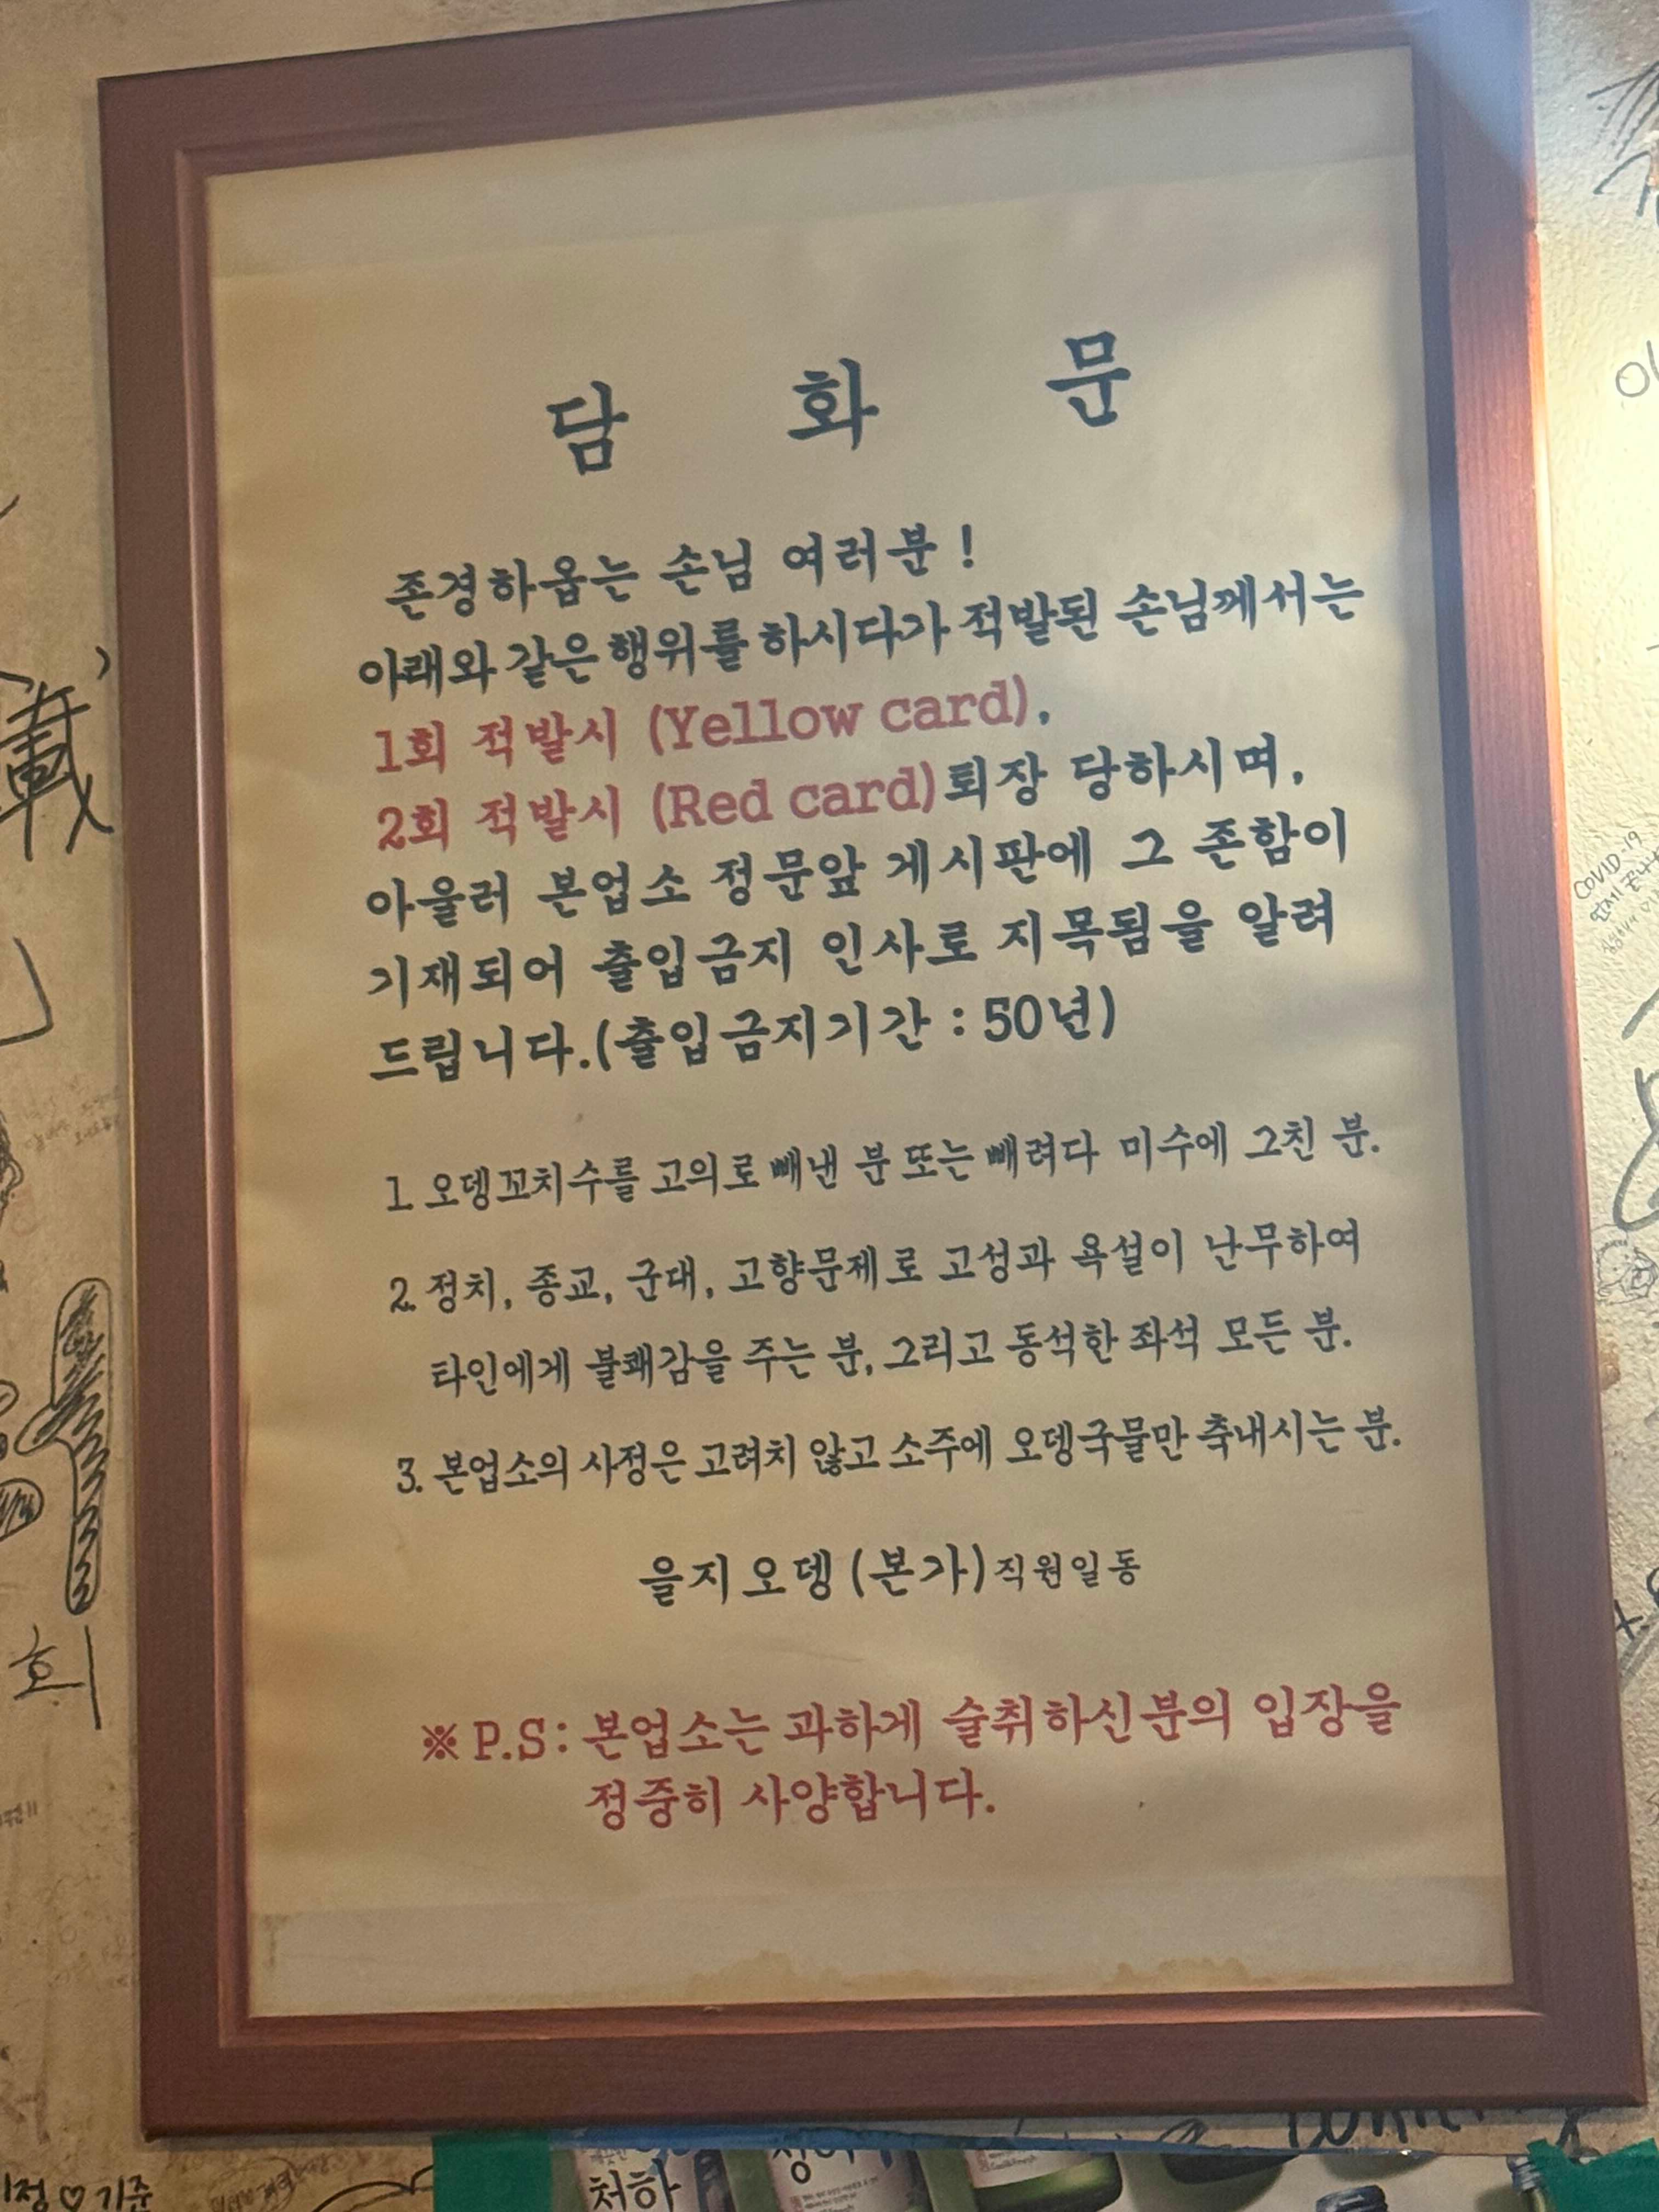 담 화 문
존경하옵는 손님 여러분 !
아래와 같은 행위를 하시다가 적발된 손님께서는
1회 적발시 (Yellow card),
2회 적발시 (Red card)퇴장 당하시며,
아울러 본업소 정문앞 게시판에 그 존함이
기재되어 출입금지 인사로 지목됨을 알려
드립니다.(출입금지기간 : 50년)
1. 오뎅꼬치수를 고의로 빼낸 분 또는 빼려다 미수에 그친 분.
2. 정치, 종교, 군대, 고향문제로 고성과 욕설이 난무하여
타인에게 불쾌감을 주는 분, 그리고 동석한 좌석 모든 분.
3. 본업소의 사정은 고려치 않고 소주에 오뎅국물만 축내시는 분.
을지오뎅(본가)직원일동
※ P.S: 본업소는 과하게 술취하신분의 입장을
정중히 사양합니다.
COVID-19
회
정♡기준
처하